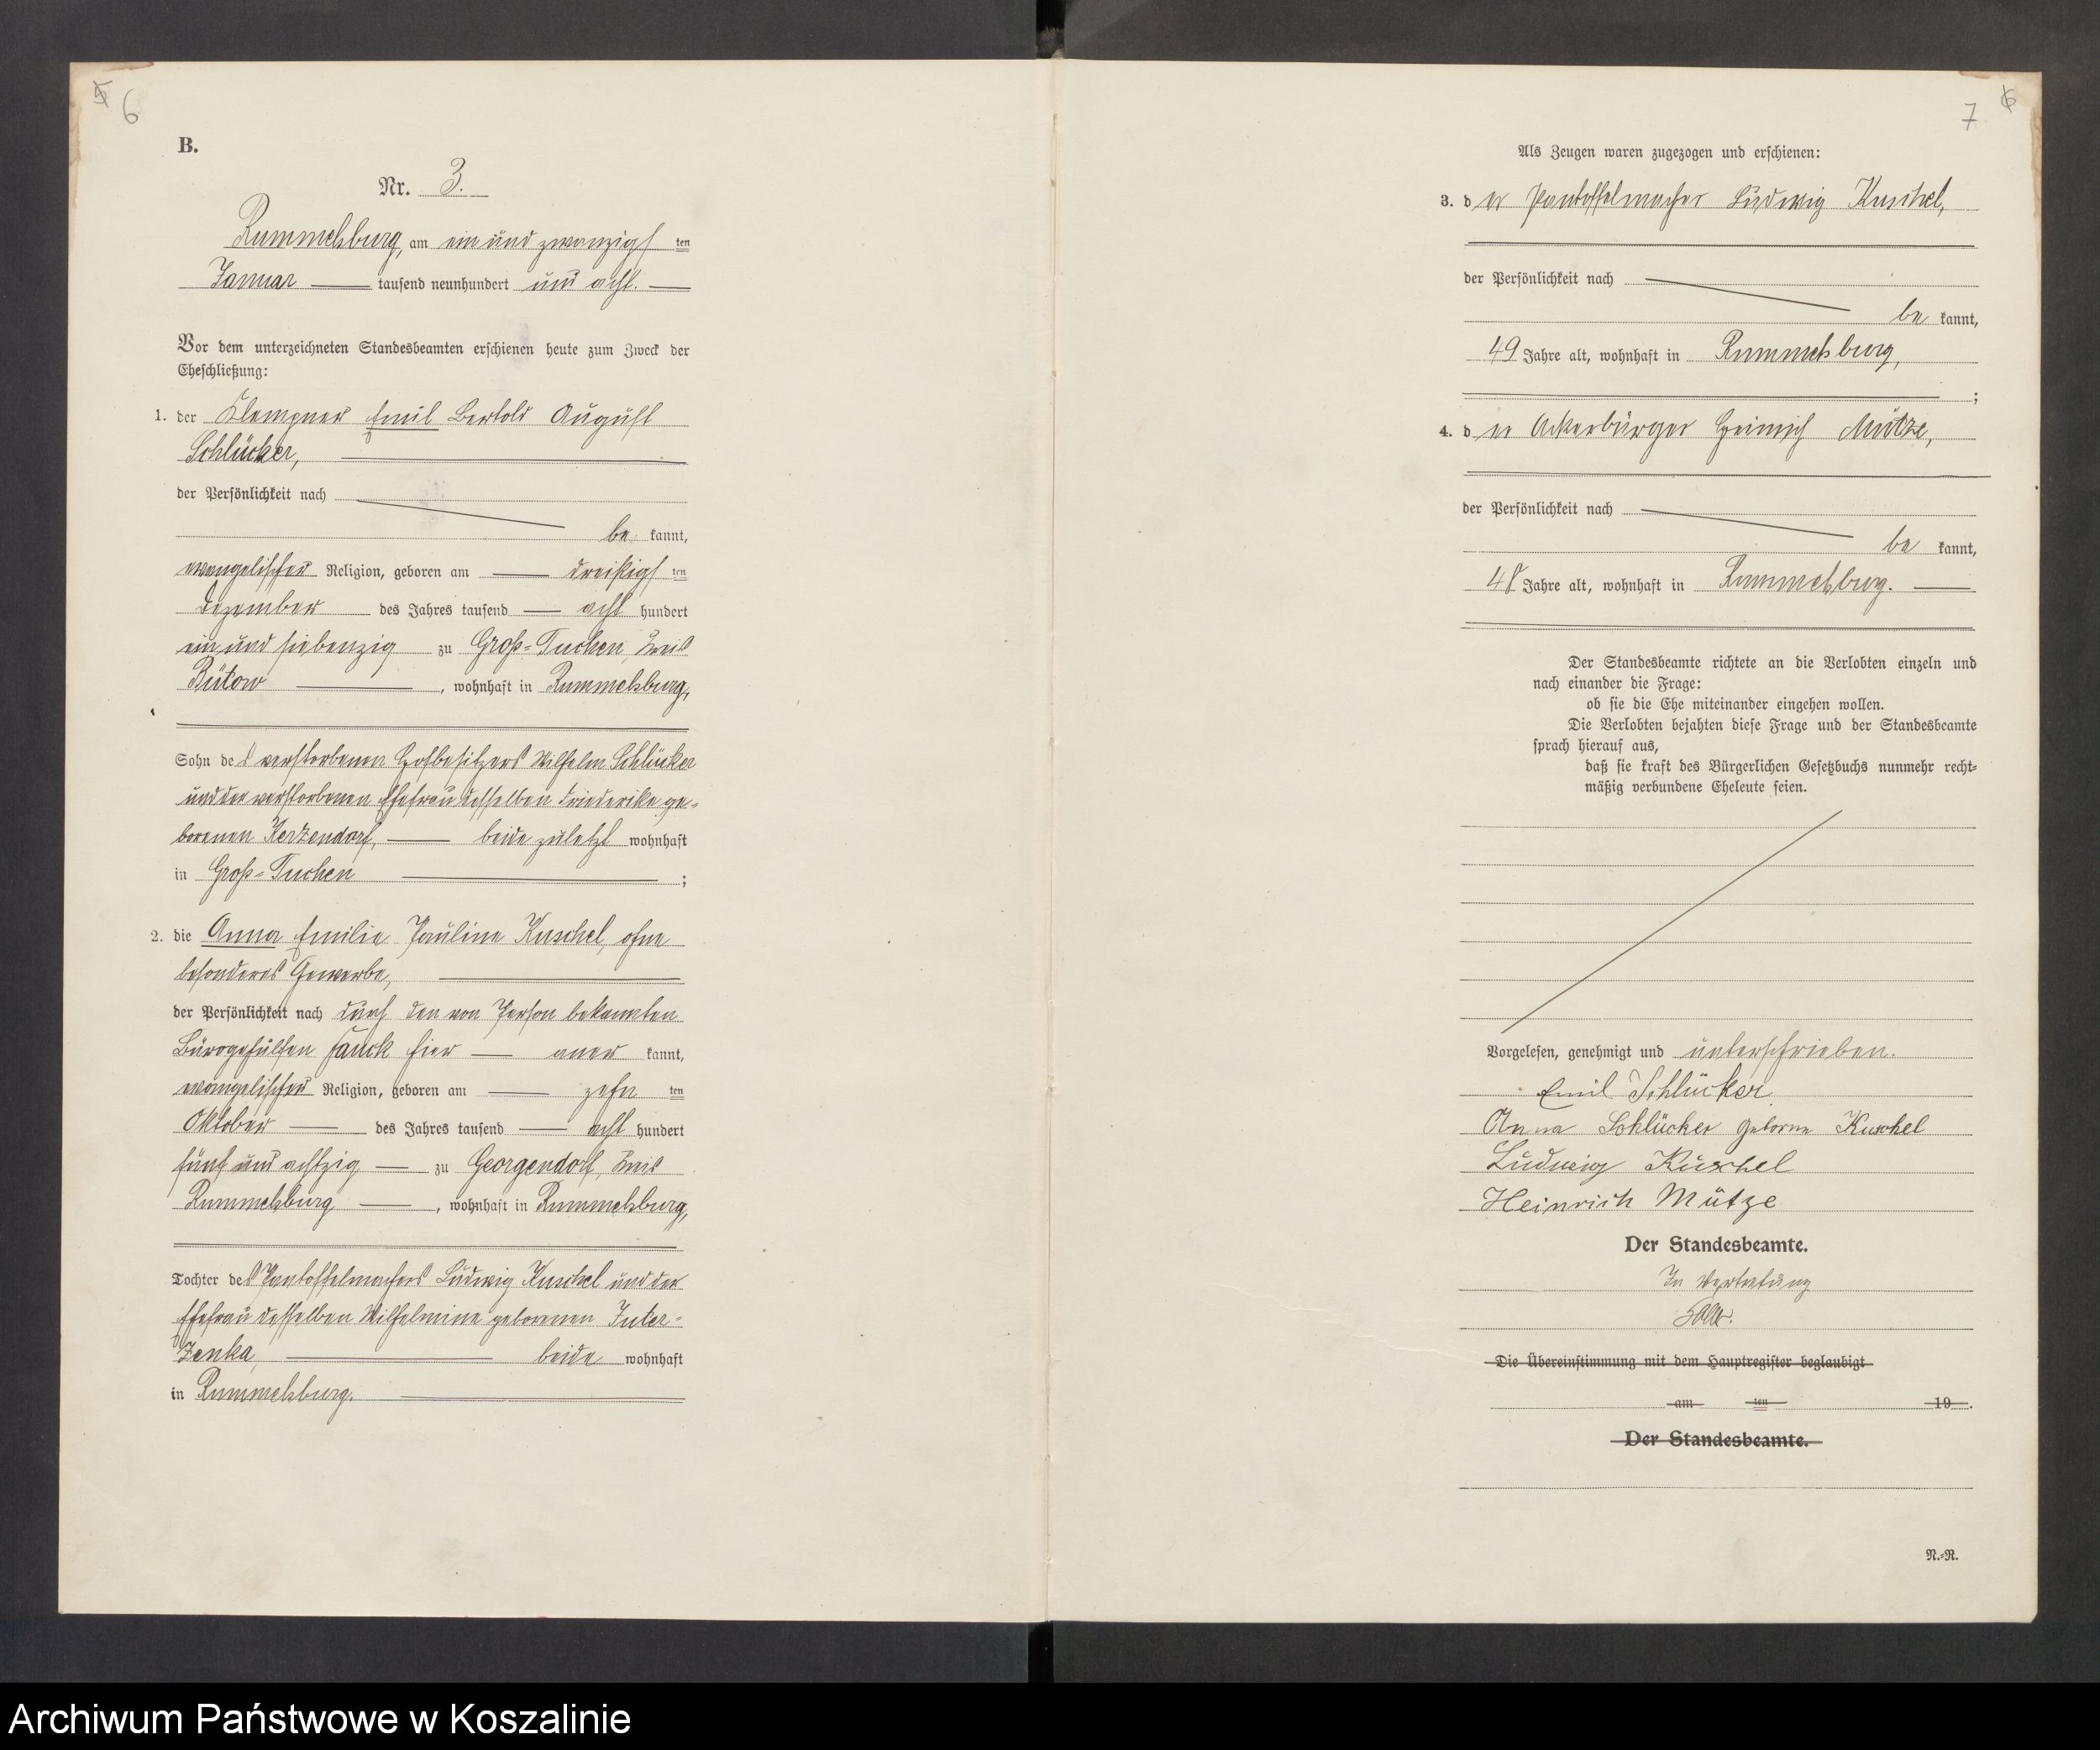 5 6
B.
Nr. 3.
Rummelsburg, am ein und zwanzigs ten
Januar tausend neunhundert und acht.
Vor dem unterzeichneten Standesbeamten erschienen heute zum Zweck der
Eheschließung:
1. der Klempner Emil Bertold August
Schlücker,
der Persönlichkeit nach
be kannt,
evangelischer Religion, geboren am dreißigs ten
Dezember des Jahres tausend acht hundert
ein und siebenzig zu Groß-Tuchen, Kreis
Bütow, wohnhaft in Rummelsburg,
Sohn des verstorbenen Hofbesitzers Wilhelm Schlücker
und der verstorbenen Ehefrau desselben Friederike ge-
borenen Kerzendorf, beide zuletzt wohnhaft
in Groß-Tuchen ;
2. die Anna Emilie Pauline Kuschel, ohne
besonderes Gewerbe,
der Persönlichkeit nach durch den von Person bekannten
Bürogehülfen Janck hier aner kannt,
evangelischer Religion, geboren am zehn ten
Oktober des Jahres tausend acht hundert
fünf und achtzig zu Georgendorf, Kreis
Rummelsburg, wohnhaft in Rummelsburg,
Tochter des Pantoffelmachers Ludwig Kuschel und der
Ehefrau desselben Wilhelmine geborenen Inter-
Zenka, beide wohnhaft
in Rummelsburg.
7 6
Als Zeugen waren zugezogen und erschienen:
3. d er Pantoffelmacher Ludwig Kuschel,
der Persönlichkeit nach
be kannt,
49 Jahre alt, wohnhaft in Rummelsburg,
;
4. d er Ackerbürger Heinrich Mütze,
der Persönlichkeit nach
be kannt,
48 Jahre alt, wohnhaft in Rummelsburg.
Der Standesbeamte richtete an die Verlobten einzeln und
nach einander die Frage:
ob sie die Ehe miteinander eingehen wollen.
Die Verlobten bejahten diese Frage und der Standesbeamte
sprach hierauf aus,
daß sie kraft des Bürgerlichen Gesetzbuchs nunmehr recht-
mäßig verbundene Eheleute seien.
Vorgelesen, genehmigt und unterschrieben.
Emil Schlücker
Anna Schlücker geborne Kuschel
Ludwig Kuschel
Heinrich Mütze
Der Standesbeamte.
In Vertretung
Die Übereinstimmung mit dem Hauptregister beglaubigt
am ten 19 .
Der Standesbeamte.
N.-R.
Archiwum Państwowe w Koszalinie